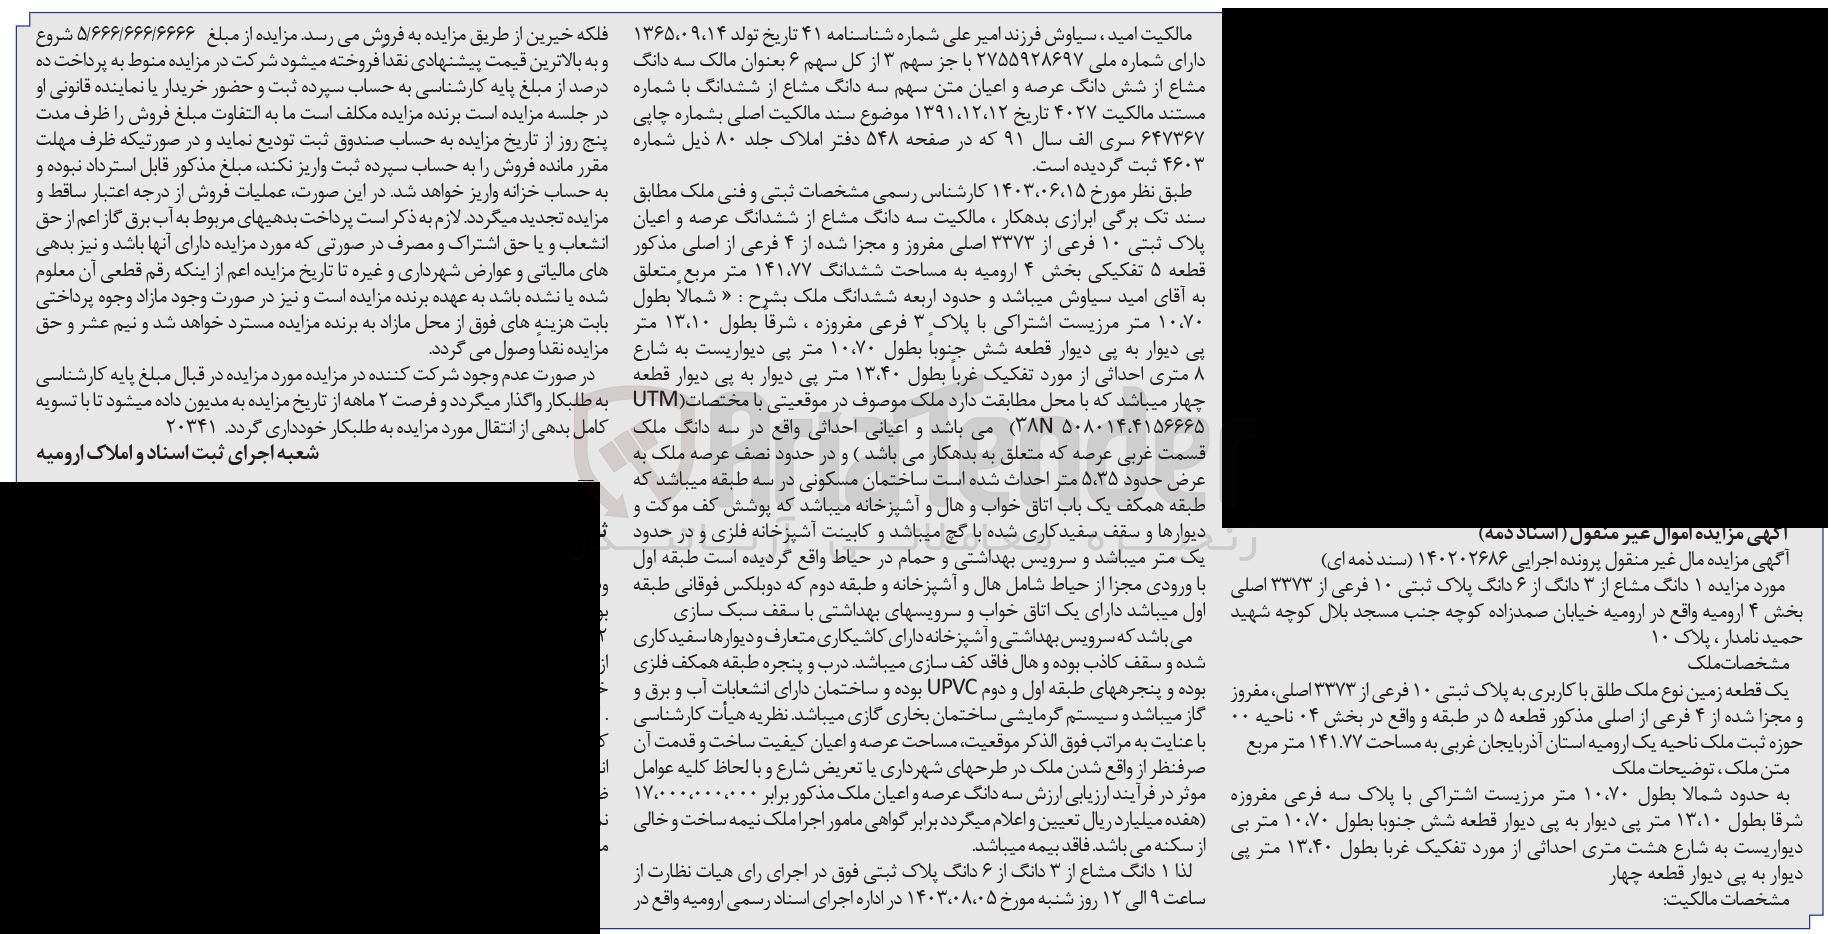 آگهی مزایده اموال غیر منقول (اسناد ذمه)
آگهی مزایده مال غیر منقول پرونده اجرایی ۱۴۰۲۰۲۶۸۶ (سند ذمه ای)
مورد مزایده ۱ دانگ مشاع از ۳ دانگ از ۶ دانگ پلاک ثبتی ۱۰ فرعی از ۳۳۷۳ اصلی
بخش ۴ ارومیه واقع در ارومیه خیابان صمدزاده کوچه جنب مسجد بلال کوچه شهید
حمید نامدار ، پلاک ۱۰
مشخصات‌ملک
یک قطعه زمین نوع ملک طلق با کاربری به پلاک ثبتی ۱۰ فرعی از ۳۳۷۳ اصلی، مفروز
و مجزا شده از ۴ فرعی از اصلی مذکور قطعه ۵ در طبقه و واقع در بخش ۰۴ ناحیه ۰۰
حوزه ثبت ملک ناحیه یک ارومیه استان آذربایجان غربی به مساحت ۱۴۱.۷۷ متر مربع
متن ملک ، توضیحات ملک
به حدود شمالا بطول ۱۰،۷۰ متر مرزیست اشتراکی با پلاک سه فرعی مفروزه
شرقا بطول ۱۳،۱۰ متر پی دیوار به پی دیوار قطعه شش جنوبا بطول ۱۰،۷۰ متر بی
دیواریست به شارع هشت متری احداثی از مورد تفکیک غربا بطول ۱۳،۴۰ متر پی
دیوار به پی دیوار قطعه چهار
مشخصات مالکیت:
مالکیت امید ، سیاوش فرزند امیر علی شماره شناسنامه ۴۱ تاریخ تولد ۱۳۶۵،۰۹،۱۴
دارای شماره ملی ۲۷۵۵۹۲۸۶۹۷ با جز سهم ۳ از کل سهم ۶ بعنوان مالک سه دانگ
مشاع از شش دانگ عرصه و اعیان متن سهم سه دانگ مشاع از ششدانگ با شماره
مستند مالکیت ۴۰۲۷ تاریخ ۱۳۹۱،۱۲،۱۲ موضوع سند مالکیت اصلی بشماره چاپی
۶۴۷۳۶۷ سری الف سال ۹۱ که در صفحه ۵۴۸ دفتر املاک جلد ۸۰ ذیل شماره
۴۶۰۳ ثبت گردیده است.
طبق نظر مورخ ۱۴۰۳،۰۶،۱۵ کارشناس رسمی مشخصات ثبتی و فنی ملک مطابق
سند تک برگی ابرازی بدهکار ، مالکیت سه دانگ مشاع از ششدانگ عرصه و اعیان
پلاک ثبتی ۱۰ فرعی از ۳۳۷۳ اصلی مفروز و مجزا شده از ۴ فرعی از اصلی مذکور
قطعه ۵ تفکیکی بخش ۴ ارومیه به مساحت ششدانگ ۱۴۱،۷۷ متر مربع متعلق
به آقای امید سیاوش میباشد و حدود اربعه ششدانگ ملک بشرح : « شمالاً بطول
۱۰،۷۰ متر مرزیست اشتراکی با پلاک ۳ فرعی مفروزه ، شرقاً بطول ۱۳،۱۰ متر
پی دیوار به پی دیوار قطعه شش جنوباً بطول ۱۰،۷۰ متر پی دیواریست به شارع
۸ متری احداثی از مورد تفکیک غرباً بطول ۱۳،۴۰ متر پی دیوار به پی دیوار قطعه
چهار میباشد که با محل مطابقت دارد ملک موصوف در موقعیتی با مختصات(UTM
۳۸N ۵۰۸۰۱۴،۴۱۵۶۶۶۵) می باشد و اعیانی احداثی واقع در سه دانگ ملک
قسمت غربی عرصه که متعلق به بدهکار می باشد ) و در حدود نصف عرصه ملک به
عرض حدود ۵،۳۵ متر احداث شده است ساختمان مسکونی در سه طبقه میباشد که
طبقه همکف یک باب اتاق خواب و هال و آشپزخانه میباشد که پوشش کف موکت و
دیوارها و سقف سفیدکاری شده با گچ میباشد و کابینت آشپزخانه فلزی و در حدود
یک متر میباشد و سرویس بهداشتی و حمام در حیاط واقع گردیده است طبقه اول
با ورودی مجزا از حیاط شامل هال و آشپزخانه و طبقه دوم که دوبلکس فوقانی طبقه
اول میباشد دارای یک اتاق خواب و سرویسهای بهداشتی با سقف سبک سازی
می باشد که سرویس بهداشتی و آشپزخانه دارای کاشیکاری متعارف و دیوارها سفیدکاری
شده و سقف کاذب بوده و هال فاقد کف سازی میباشد. درب و پنجره طبقه همکف فلزی
بوده و پنجرههای طبقه اول و دوم UPVC بوده و ساختمان دارای انشعابات آب و برق و
گاز میباشد و سیستم گرمایشی ساختمان بخاری گازی میباشد. نظریه هیأت کارشناسی
با عنایت به مراتب فوق الذکر موقعیت، مساحت عرصه و اعیان کیفیت ساخت و قدمت آن
صرفنظر از واقع شدن ملک در طرحهای شهرداری یا تعریض شارع و با لحاظ کلیه عوامل
موثر در فرآیند ارزیابی ارزش سه دانگ عرصه و اعیان ملک مذکور برابر ۱۷،۰۰۰،۰۰۰،۰۰۰
(هفده میلیارد ریال تعیین و اعلام میگردد برابر گواهی مامور اجرا ملک نیمه ساخت و خالی
از سکنه می باشد. فاقد بیمه میباشد.
لذا ۱ دانگ مشاع از ۳ دانگ از ۶ دانگ پلاک ثبتی فوق در اجرای رای هیات نظارت از
ساعت ۹ الی ۱۲ روز شنبه مورخ ۱۴۰۳،۰۸،۰۵ در اداره اجرای اسناد رسمی ارومیه واقع در
فلکه خیرین از طریق مزایده به فروش می رسد. مزایده از مبلغ ۵/۶۶۶/۶۶۶/۶۶۶۶ شروع
و به بالاترین قیمت پیشنهادی نقداً فروخته میشود شرکت در مزایده منوط به پرداخت ده
درصد از مبلغ پایه کارشناسی به حساب سپرده ثبت و حضور خریدار یا نماینده قانونی او
در جلسه مزایده است برنده مزایده مکلف است ما به التفاوت مبلغ فروش را ظرف مدت
پنج روز از تاریخ مزایده به حساب صندوق ثبت تودیع نماید و در صورتیکه ظرف مهلت
مقرر مانده فروش را به حساب سپرده ثبت واریز نکند، مبلغ مذکور قابل استرداد نبوده و
به حساب خزانه واریز خواهد شد. در این صورت، عملیات فروش از درجه اعتبار ساقط و
مزایده تجدید میگردد. لازم به ذکر است پرداخت بدهیهای مربوط به آب برق گاز اعم از حق
انشعاب و یا حق اشتراک و مصرف در صورتی که مورد مزایده دارای آنها باشد و نیز بدهی
های مالیاتی و عوارض شهرداری و غیره تا تاریخ مزایده اعم از اینکه رقم قطعی آن معلوم
شده یا نشده باشد به عهده برنده مزایده است و نیز در صورت وجود مازاد وجوه پرداختی
بابت هزینه های فوق از محل مازاد به برنده مزایده مسترد خواهد شد و نیم عشر و حق
مزایده نقداً وصول می گردد.
در صورت عدم وجود شرکت کننده در مزایده مورد مزایده در قبال مبلغ پایه کارشناسی
به طلبکار واگذار میگردد و فرصت ۲ ماهه از تاریخ مزایده به مدیون داده میشود تا با تسویه
کامل بدهی از انتقال مورد مزایده به طلبکار خودداری گردد. ۲۰۳۴۱
شعبه اجرای ثبت اسناد و املاک ارومیه
AriaTender